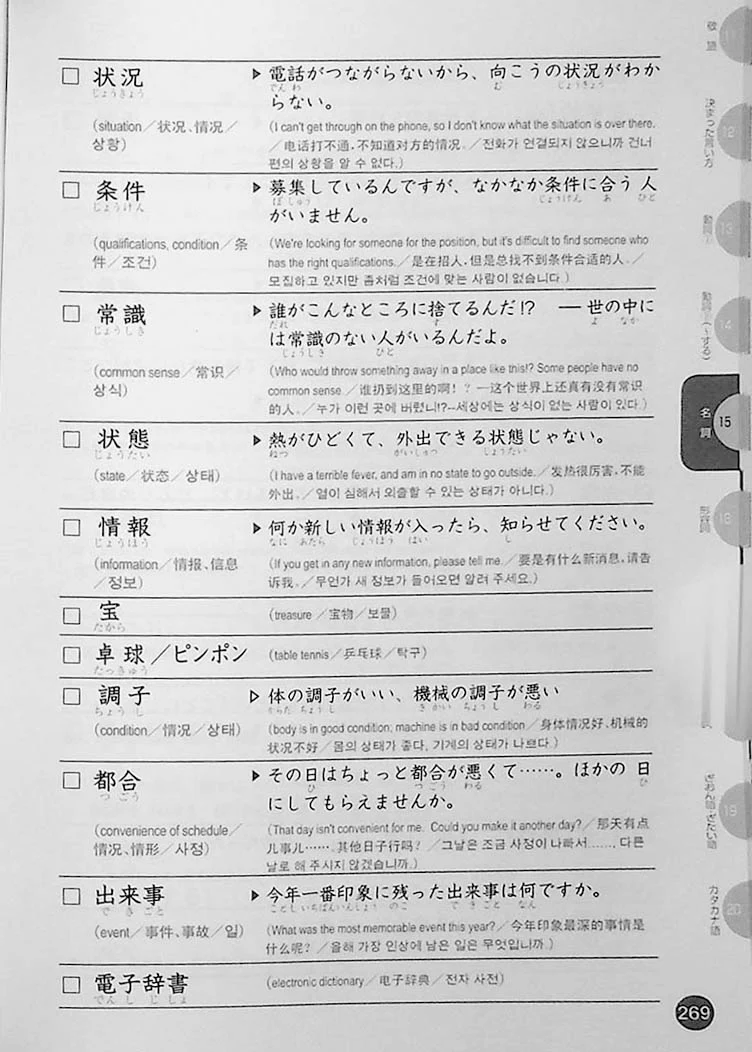 □ 状況
じょうきょう
(situation／状况、情况／
상황)
▶ 電話がつながらないから、向こうの状況がわか
でんわ む じょうきょう
らない。
(I can't get through on the phone, so I don't know what the situation is over there.
／电话打不通，不知道对方的情况。／전화가 연결되지 않으니까 건너
편의 상황을 알 수 없다.)
□ 条件
じょうけん
(qualifications, condition／条
件／조건)
▶ 募集しているんですが、なかなか条件に合う人
ぼしゅう じょうけん あ ひと
がいません。
(We're looking for someone for the position, but it's difficult to find someone who
has the right qualifications.／是在招人，但是总找不到条件合适的人。／
모집하고 있지만 좀처럼 조건에 맞는 사람이 없습니다.)
□ 常識
じょうしき
(common sense／常识／
상식)
▶ 誰がこんなところに捨てるんだ!? ―世の中に
だれ す よ なか
は常識のない人がいるんだよ。
じょうしき ひと
(Who would throw something away in a place like this!? Some people have no
common sense.／谁扔到这里的啊！？—这个世界上还真有没有常识
的人。／누가 이런 곳에 버렸니!?--세상에는 상식이 없는 사람이 있다.)
□ 状態
じょうたい
(state／状态／상태)
▶ 熱がひどくて、外出できる状態じゃない。
ねつ がいしゅつ じょうたい
(I have a terrible fever, and am in no state to go outside.／发热很厉害，不能
外出。／열이 심해서 외출할 수 있는 상태가 아니다.)
□ 情報
じょうほう
(information／情报、信息
／정보)
▶ 何か新しい情報が入ったら、知らせてください。
なに あたら じょうほう はい し
(If you get in any new information, please tell me.／要是有什么新消息，请告
诉我。／무언가 새 정보가 들어오면 알려 주세요.)
□ 宝
たから
(treasure／宝物／보물)
□ 卓球／ピンポン
たっきゅう
(table tennis／乒乓球／탁구)
□ 調子
ちょうし
(condition／情况／상태)
▶ 体の調子がいい、機械の調子が悪い
からだ ちょうし きかい ちょうし わる
(body is in good condition; machine is in bad condition／身体情况好、机械的
状况不好／몸의 상태가 좋다, 기계의 상태가 나쁘다.)
□ 都合
つごう
(convenience of schedule／
情况、情形／사정)
▶ その日はちょっと都合が悪くて……。ほかの日
ひ つごう わる ひ
にしてもらえませんか。
(That day isn't convenient for me. Could you make it another day?／那天有点
儿事儿……。其他日子行吗？／그날은 조금 사정이 나빠서……, 다른
날로 해 주시지 않겠습니까.)
□ 出来事
できごと
(event／事件、事故／일)
▶ 今年一番印象に残った出来事は何ですか。
ことし いちばんいんしょう のこ できごと なん
(What was the most memorable event this year?／今年印象最深的事情是
什么呢？／올해 가장 인상에 남은 일은 무엇입니까.)
□ 電子辞書
でんしじしょ
(electronic dictionary／电子辞典／전자 사전)
269
11
敬語
12
決まった言い方
13
動詞①
14
動詞②(〜する)
15
名詞
形容詞
19
ぎおん語・ぎたい語
20
カタカナ語